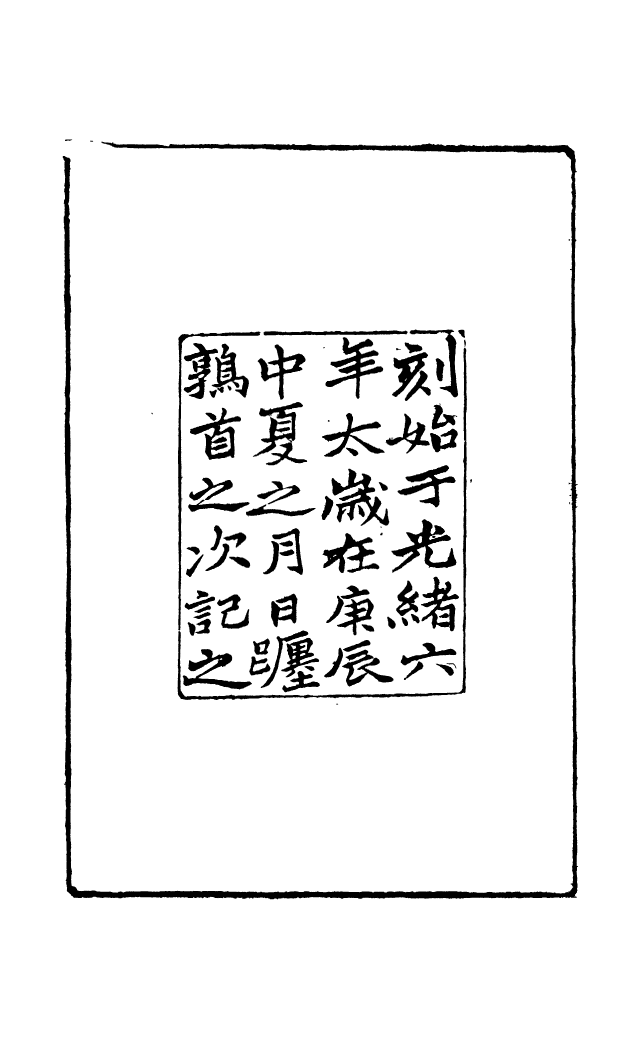 刻始于光緒六
年太歲在庚辰
中夏之月日躔
鶉首之次記之